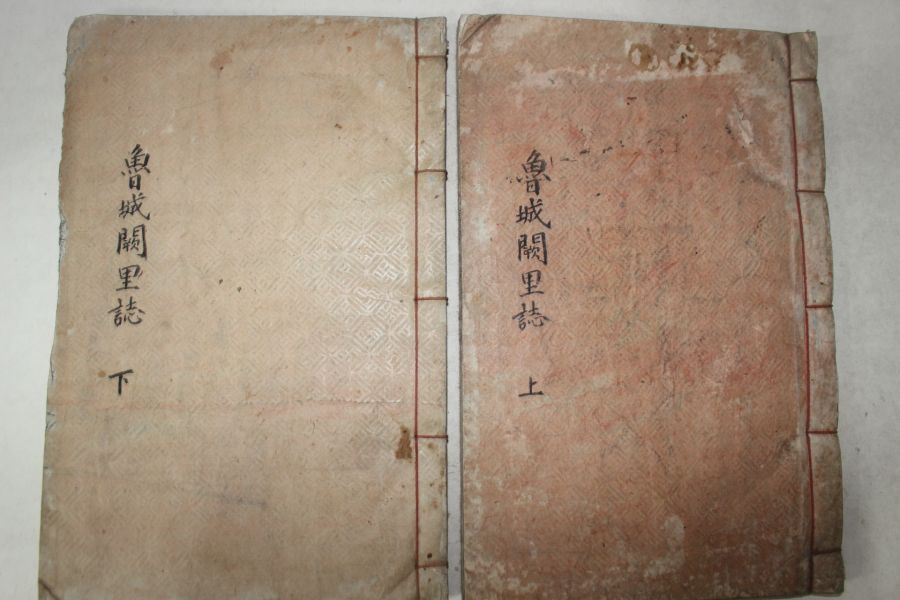 魯城闕里誌 上
魯城闕里誌 下